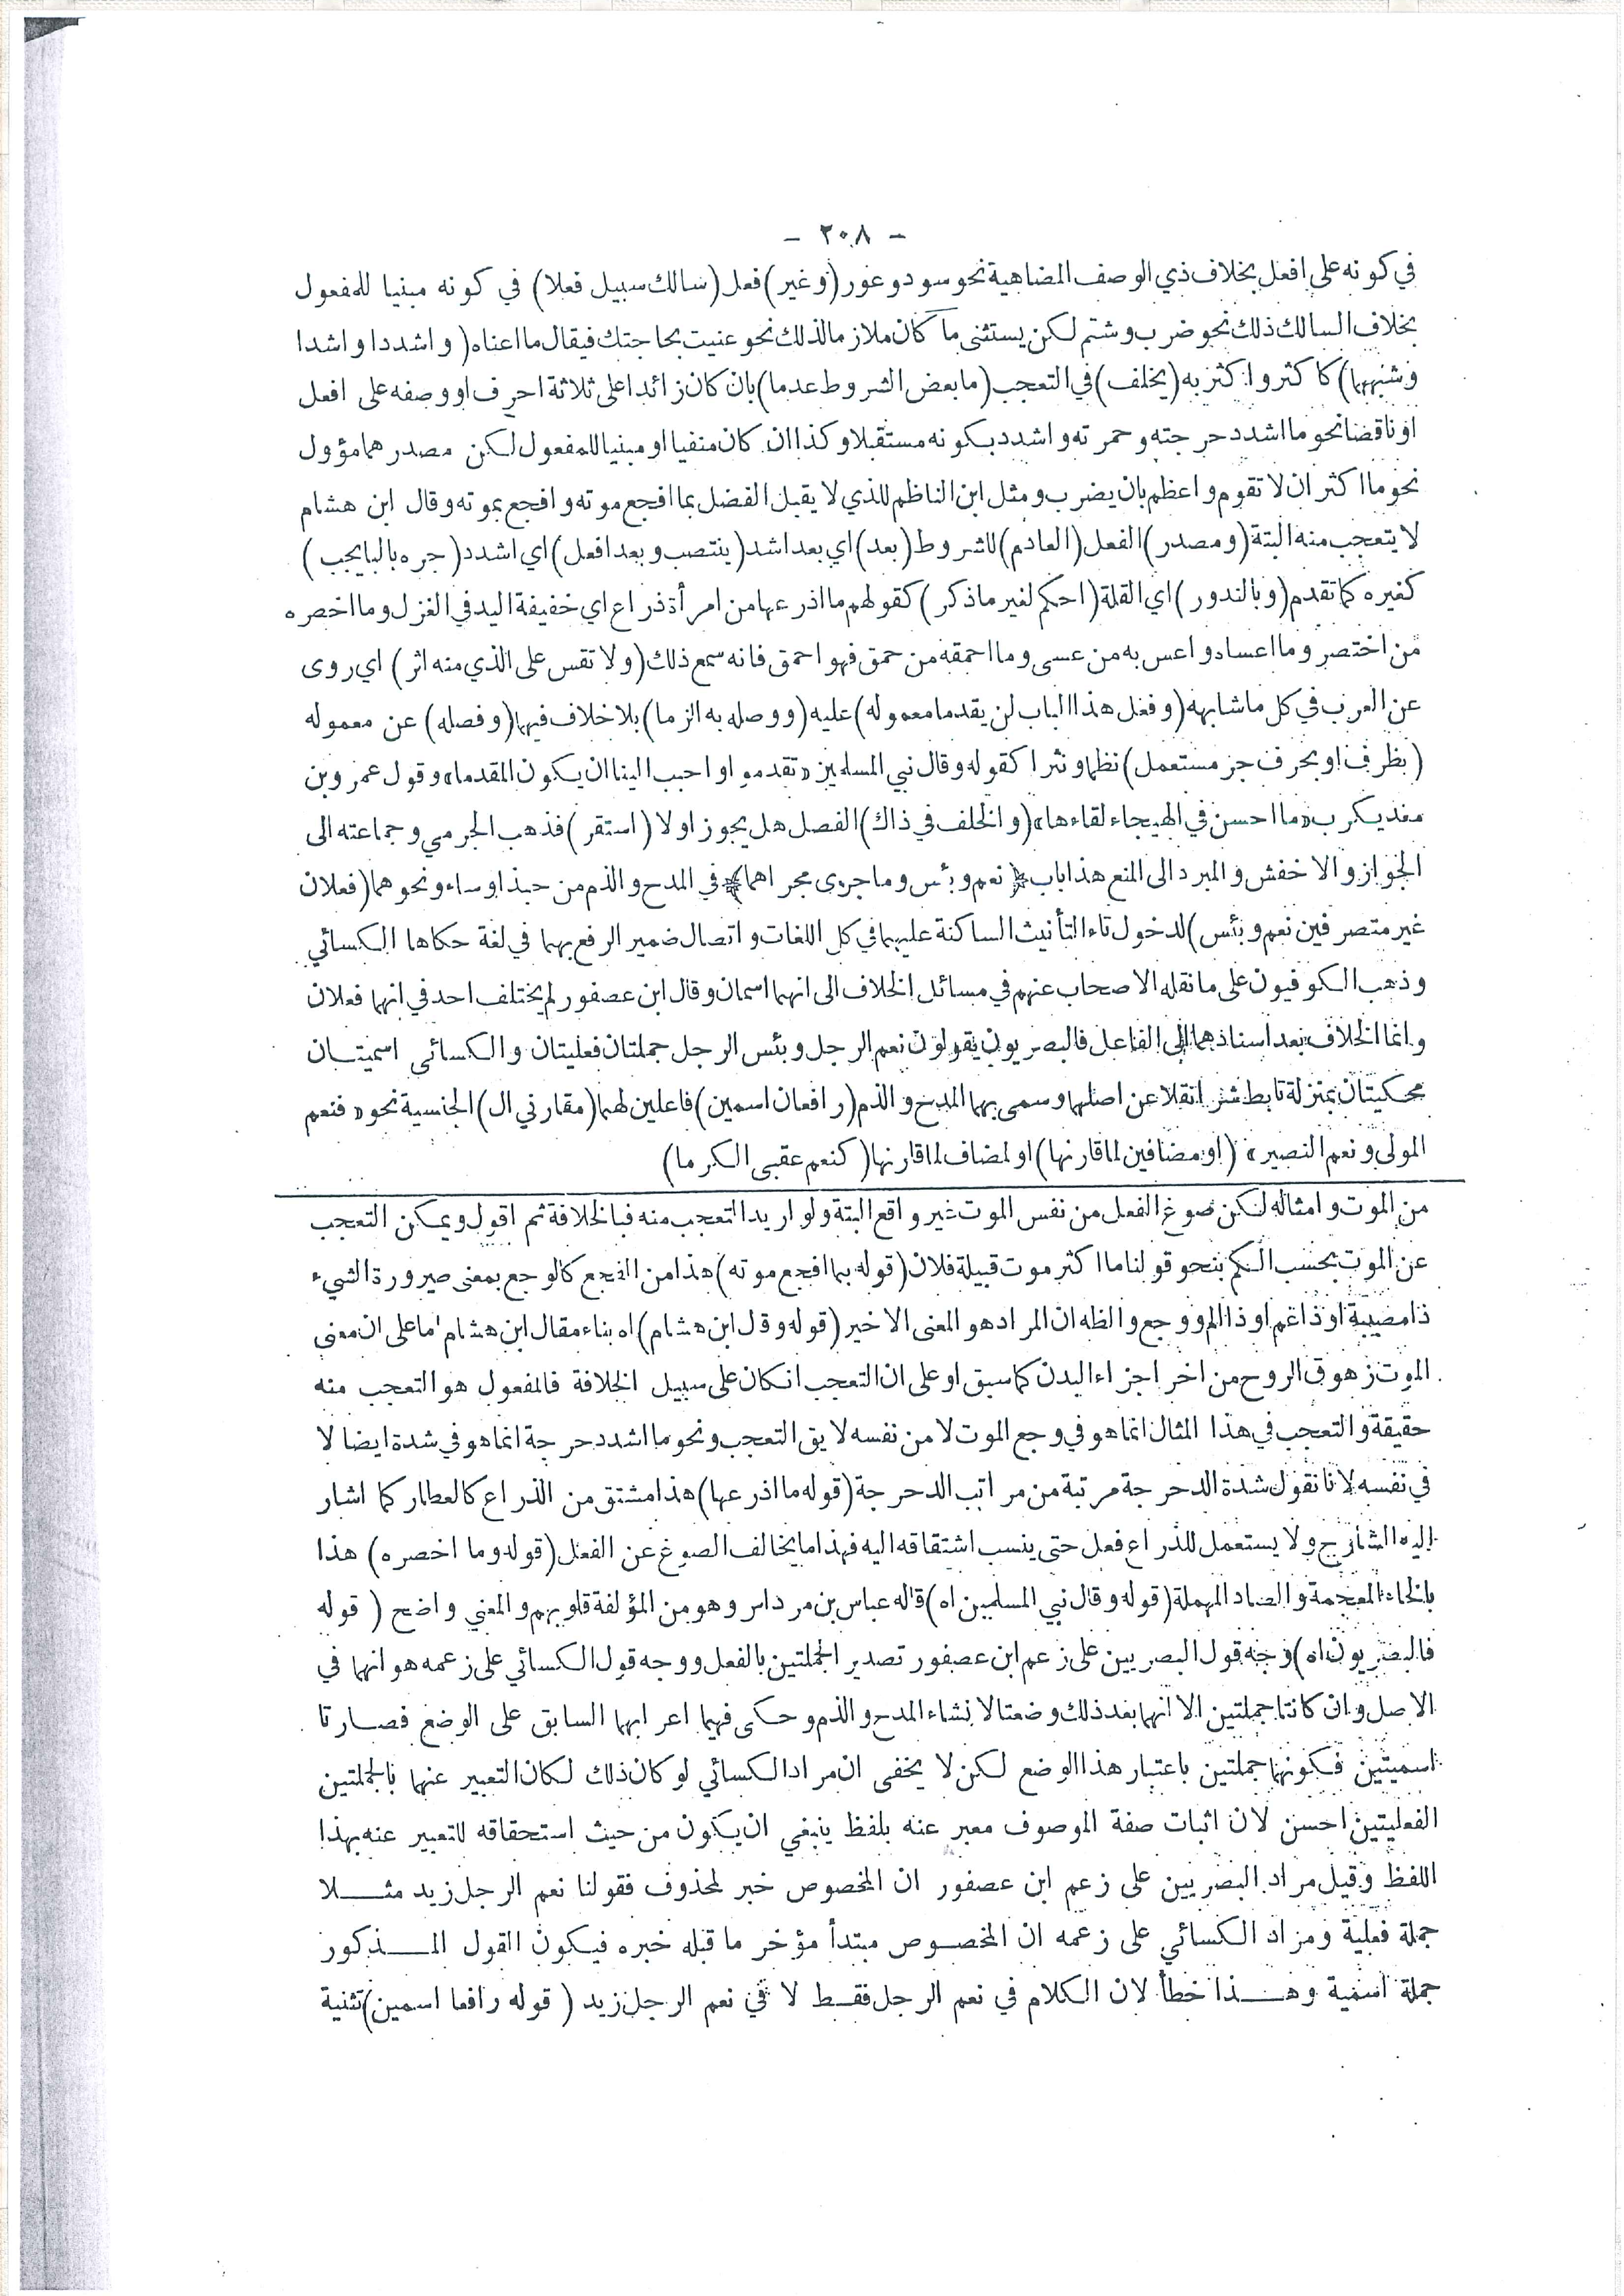 - ٢٠٨ -
في كونه على افعل بخلاف ذي الوصف المضاهية نحو سود وعور (وغير) فعل (سالك سبيل فعلا) في كونه مبنيا للمفعول
بخلاف السالك ذلك نحو ضرب وشتم لكن يستثنى ما كان ملازما لذلك نحو عنيت بحاجتك فيقال ما اعناه (واشددا واشدا
وشبههما) كاكثر واكثر به (يخلف) في التعجب (ما بعض الشروط عدما) بان كان زائدا على ثلاثة احرف او وصفه على افعل
او ناقضا نحو ما اشد دحرجته وحمرته واشدد بكونه مستقبلا وكذا ان كان منفيا او مبنيا للمفعول لكن مصدرهما مؤول
نحو ما اكثر ان لا تقوم واعظم بان يضرب ومثل ابن الناظم للذي لا يقبل الفضل بما افجع موته وافجع بموته وقال ابن هشام
لا يتعجب منه البتة (ومصدر) الفعل (العادم) للشروط (بعد) اي بعد اشد (ينتصب وبعد افعل) اي اشدد (جره بالبا يجب)
كغيره كما تقدم (وبالندور) اي القلة (احكم لغير ما ذكر) كقولهم ما اذرعها من امرأة ذراع اي خفيفة اليد في الغزل وما اخصره
من اختصر وما اعساه واعس به من عسى وما احمقه من حمق فهو احمق فانه سمع ذلك (ولا تقس على الذي منه اثر) اي روى
عن العرب في كل ما شابهه (وفعل هذا الباب لن يقدما معموله) عليه (ووصله به الزما) بلا خلاف فيهما (وفصله) عن معموله
(بظرف او بحرف جر مستعمل) نظما ونثرا كقوله وقال نبي المسلمين «تقدموا واحبب الينا ان يكون المقدما» وقول عمرو بن
معديكرب «ما احسن في الهيجاء لقاءها» (والخلف في ذاك) الفصل هل يجوز او لا (استقر) فذهب الجرمي وجماعته الى
الجواز والاخفش والمبرد الى المنع هذا باب ﴿نعم وبئس وما جرى مجراهما﴾ في المدح والذم من حبذا وساء ونحوهما (فعلان
غير متصرفين نعم وبئس) لدخول تاء التأنيث الساكنة عليهما في كل اللغات واتصال ضمير الرفع بهما في لغة حكاها الكسائي
وذهب الكوفيون على ما نقله الاصحاب عنهم في مسائل الخلاف الى انهما اسمان وقال ابن عصفور لم يختلف احد في انهما فعلان
وانما الخلاف بعد اسنادهما الى الفاعل فالبصريون يقولون نعم الرجل وبئس الرجل جملتان فعليتان والكسائي اسميتان
محكيتان بمنزلة تابط شرا نقلا عن اصلهما وسمى بهما المدح والذم (رافعان اسمين) فاعلين لهما (مقارني ال) الجنسية نحو «فنعم
المولى ونعم النصير» (او مضافين لما قارنها) او لمضاف لما قارنها (كنعم عقبى الكرما)
من الموت وامثاله لكن صوغ الفعل من نفس الموت غير واقع البتة ولو اريد التعجب منه فبالخلافة ثم اقول ويمكن التعجب
عن الموت بحسب الكم بنحو قولنا ما اكثر موت قبيلة فلان (قوله بما افجع موته) هذا من الفجع كالوجع بمعنى صيرورة الشيء
ذا مصيبة او ذا غم او ذا الم ووجع والظه ان المراد هو المعنى الاخير (قوله وقل ابن هشام) اه بناء مقال ابن هشام اما على ان معنى
الموت زهوق الروح من اخر اجزاء البدن كما سبق او على ان التعجب انكان على سبيل الخلافة فالمفعول هو التعجب منه
حقيقة والتعجب في هذا المثال انما هو في وجع الموت لا من نفسه لا يق التعجب ونحو ما اشد دحرجة انما هو في شدة ايضا لا
في نفسه لانا نقول شدة الدحرجة مرتبة من مراتب الدحرجة (قوله ما اذرعها) هذا مشتق من الذراع كالعطار كما اشار
اليه الشارح ولا يستعمل للذراع فعل حتى ينسب اشتقاقه اليه فهذا ما يخالف الصوغ عن الفعل (قوله وما اخصره) هذا
بالخاء المعجمة والصاد المهملة (قوله وقال نبي المسلمين اه) قاله عباس بن مرداس وهو من المؤلفة قلوبهم والمعني واضح (قوله
فالبصريون اه) وجه قول البصريين على زعم ابن عصفور تصدير الجملتين بالفعل ووجه قول الكسائي على زعمه هو انهما في
الاصل وان كانتا جملتين الا انهما بعد ذلك وضعتا لانشاء المدح والذم وحكى فيهما اعرابهما السابق على الوضع فصارتا
اسميتين فكونهما جملتين باعتبار هذا الوضع لكن لا يخفى ان مراد الكسائي لو كان ذلك لكان التعبير عنهما بالجملتين
الفعليتين احسن لان اثبات صفة الموصوف معبر عنه بلفظ ينبغي ان يكون من حيث استحقاقه للتعبير عنه بهذا
اللفظ وقيل مراد البصريين على زعم ابن عصفور ان المخصوص خبر لمحذوف فقولنا نعم الرجل زيد مثلا
جملة فعلية ومراد الكسائي على زعمه ان المخصوص مبتدأ مؤخر ما قبله خبره فيكون القول المذكور
جملة اسمية وهذا خطأ لان الكلام في نعم الرجل فقط لا في نعم الرجل زيد (قوله رافعا اسمين) تثنية